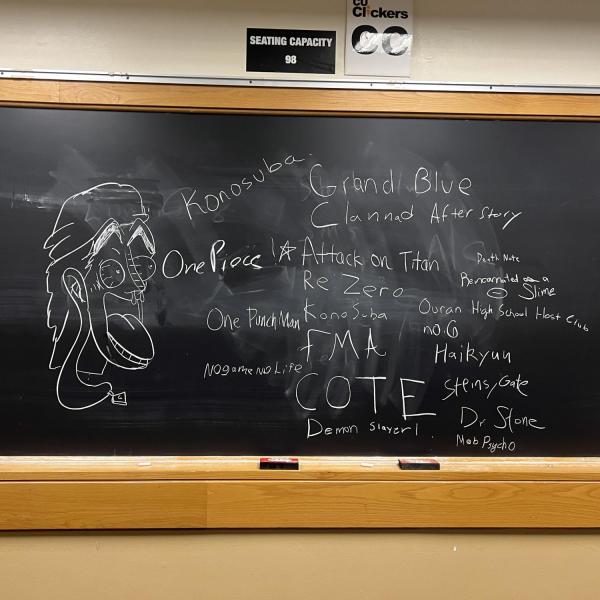 CU
Clickers
SEATING CAPACITY
98
Konosuba.
Grand Blue
Clannad After Story
One Piece
Attack on Titan
Death Note
Re Zero
Reincarnated a
Slime
One Punch Man
KonoSuba
Ouran High School Host Club
no. 6
FMA
Haikyuu
No game No Life
COTE
Steins, Gate
Dr Stone
Demon Slayer!
Mob Psycho